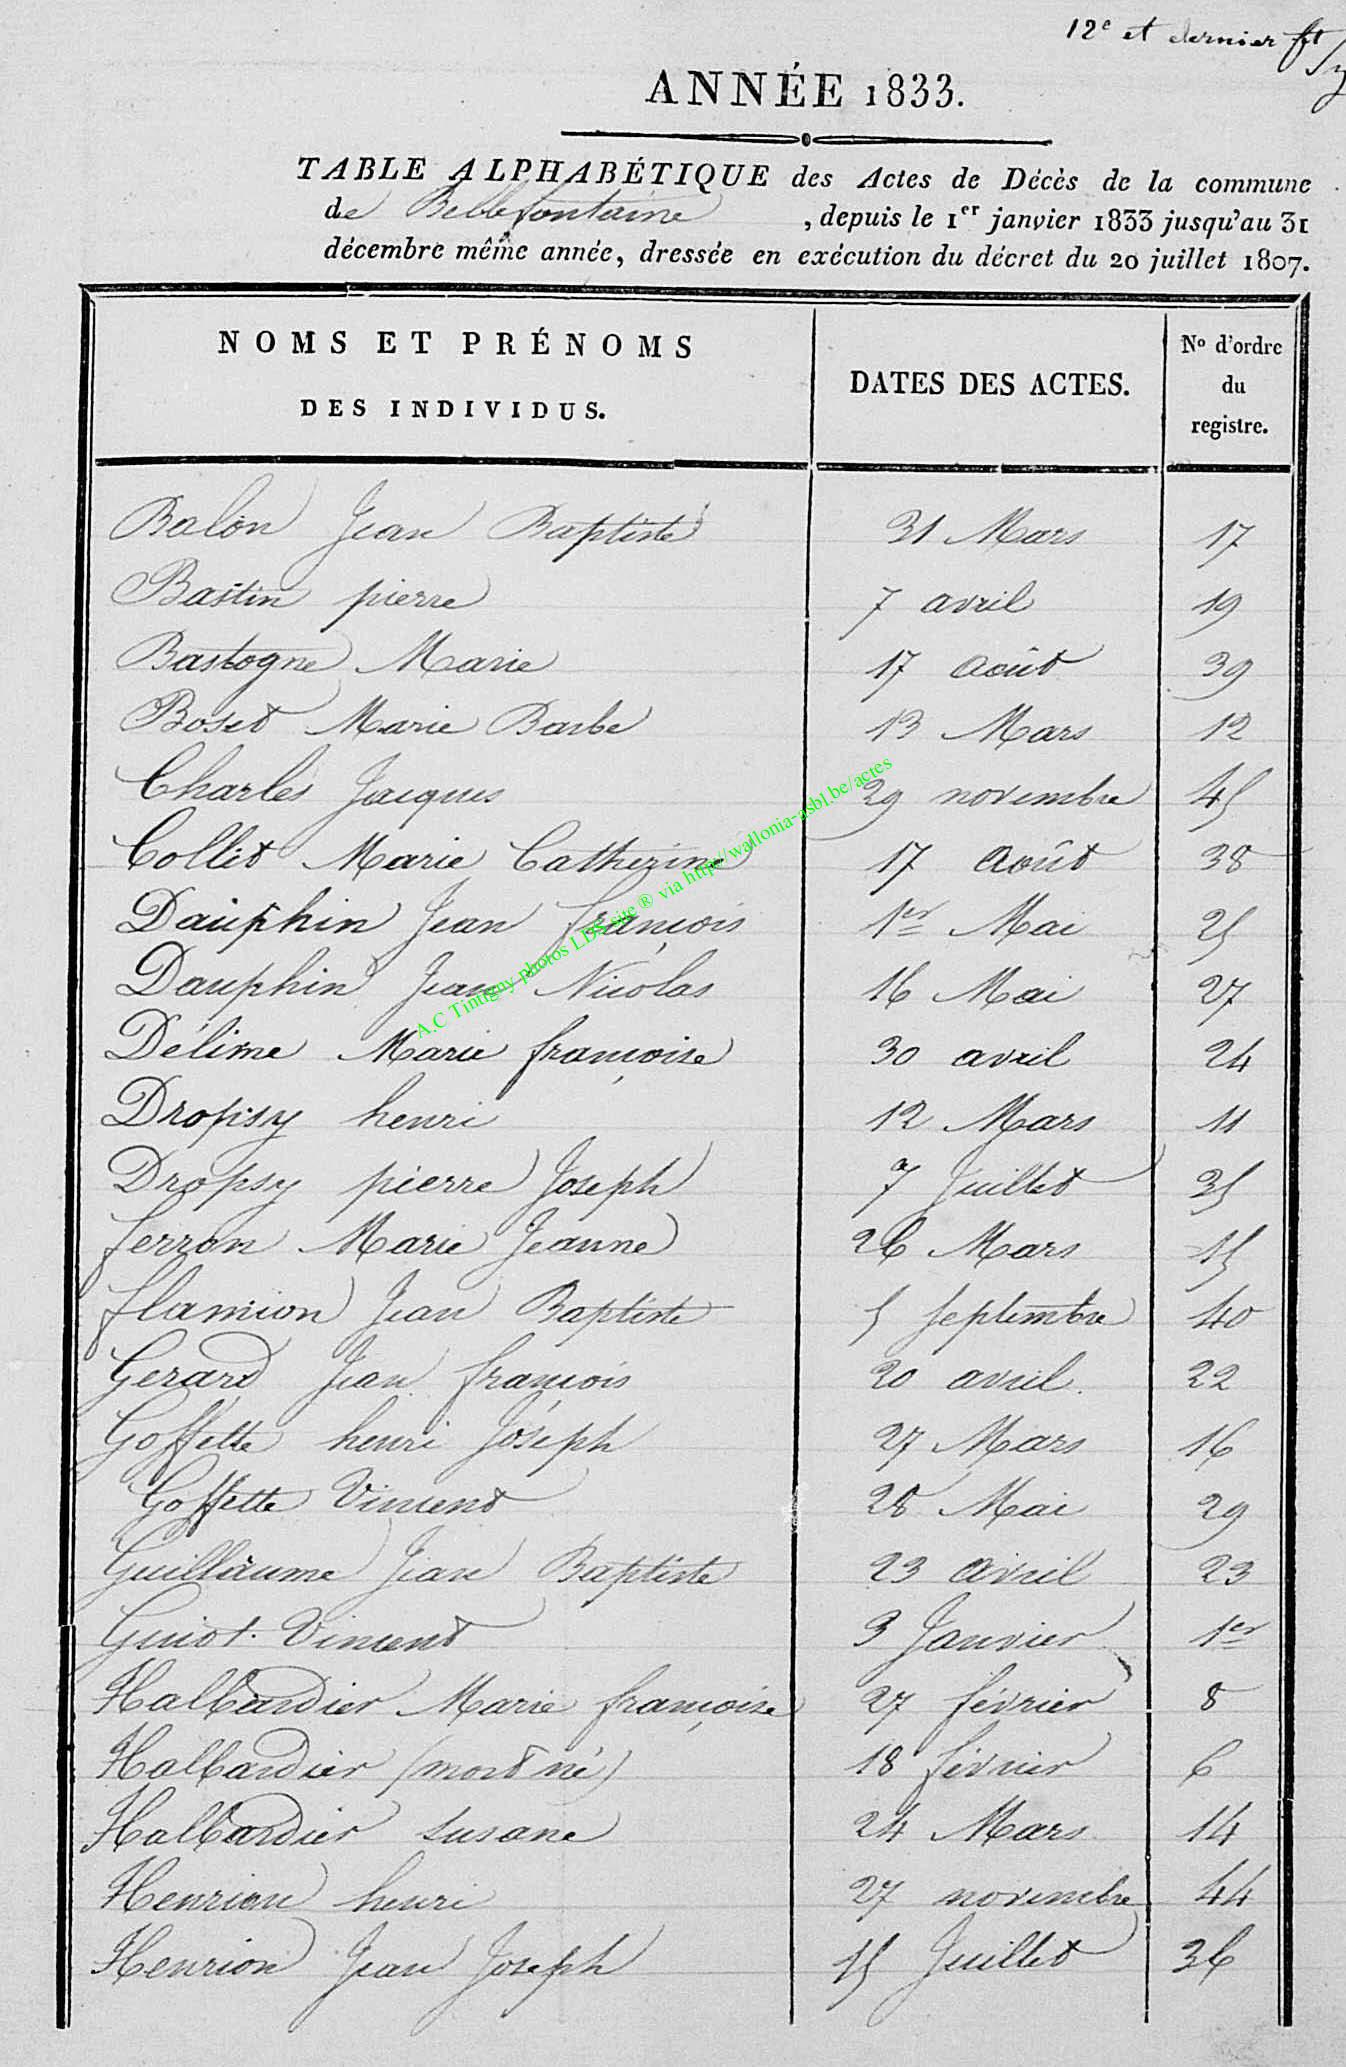 12e et dernier ft
ANNÉE 1833.
TABLE ALPHABÉTIQUE des Actes de Décès de la commune
de Bellefontaine, depuis le 1er janvier 1833 jusqu'au 31
décembre même année, dressée en exécution du décret du 20 juillet 1807.
NOMS ET PRÉNOMS
DES INDIVIDUS.
DATES DES ACTES.
No d'ordre
du
registre.
Balon Jean Baptiste 31 Mars 17
Bastin pierre 7 avril 19
Bastogne Marie 17 Août 39
Boset Marie Barbe 13 Mars 12
Charles Jacques 29 novembre 45
Collet Marie Catherine 17 Août 38
Dauphin Jean françois 1er Mai 25
Dauphin Jean Nicolas 16 Mai 27
Délime Marie françoise 30 avril 24
Dropsy henri 12 Mars 11
Dropsy pierre Joseph 7 Juillet 35
ferron Marie Jeanne 26 Mars 15
flamion Jean Baptiste 5 septembre 40
Gerard Jean françois 20 avril 22
Goffette henri Joseph 27 Mars 16
Goffette Vincent 28 Mai 29
Guillaume Jean Baptiste 23 avril 23
Guiot Vincent 3 Janvier 1er
Halbardier Marie françoise 27 février 8
Halbardier (mort né) 18 février 6
Halbardier susane 24 Mars 14
Henrion henri 27 novembre 44
Henrion Jean Joseph 15 Juillet 36
A.C Tintigny photos LDS site ® via http://wallonia-asbl.be/actes